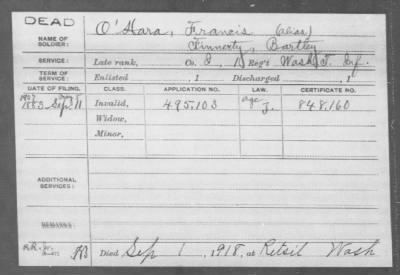 DEAD
NAME OF SOLDIER: O'Hara, Francis (alias)
Finnerty, Bartley
SERVICE: Late rank, Co. I, 1 Reg't Wash. T. Inf.
TERM OF SERVICE: Enlisted , 1 Discharged , 1
DATE OF FILING. CLASS. APPLICATION NO. LAW. CERTIFICATE NO.
1907
1883 Sep. 11 Invalid, 495.103 age J. 848.160
Widow,
Minor,
ADDITIONAL SERVICES:
REMARKS:
Died Sep 1, 1918, at Retsil Wash